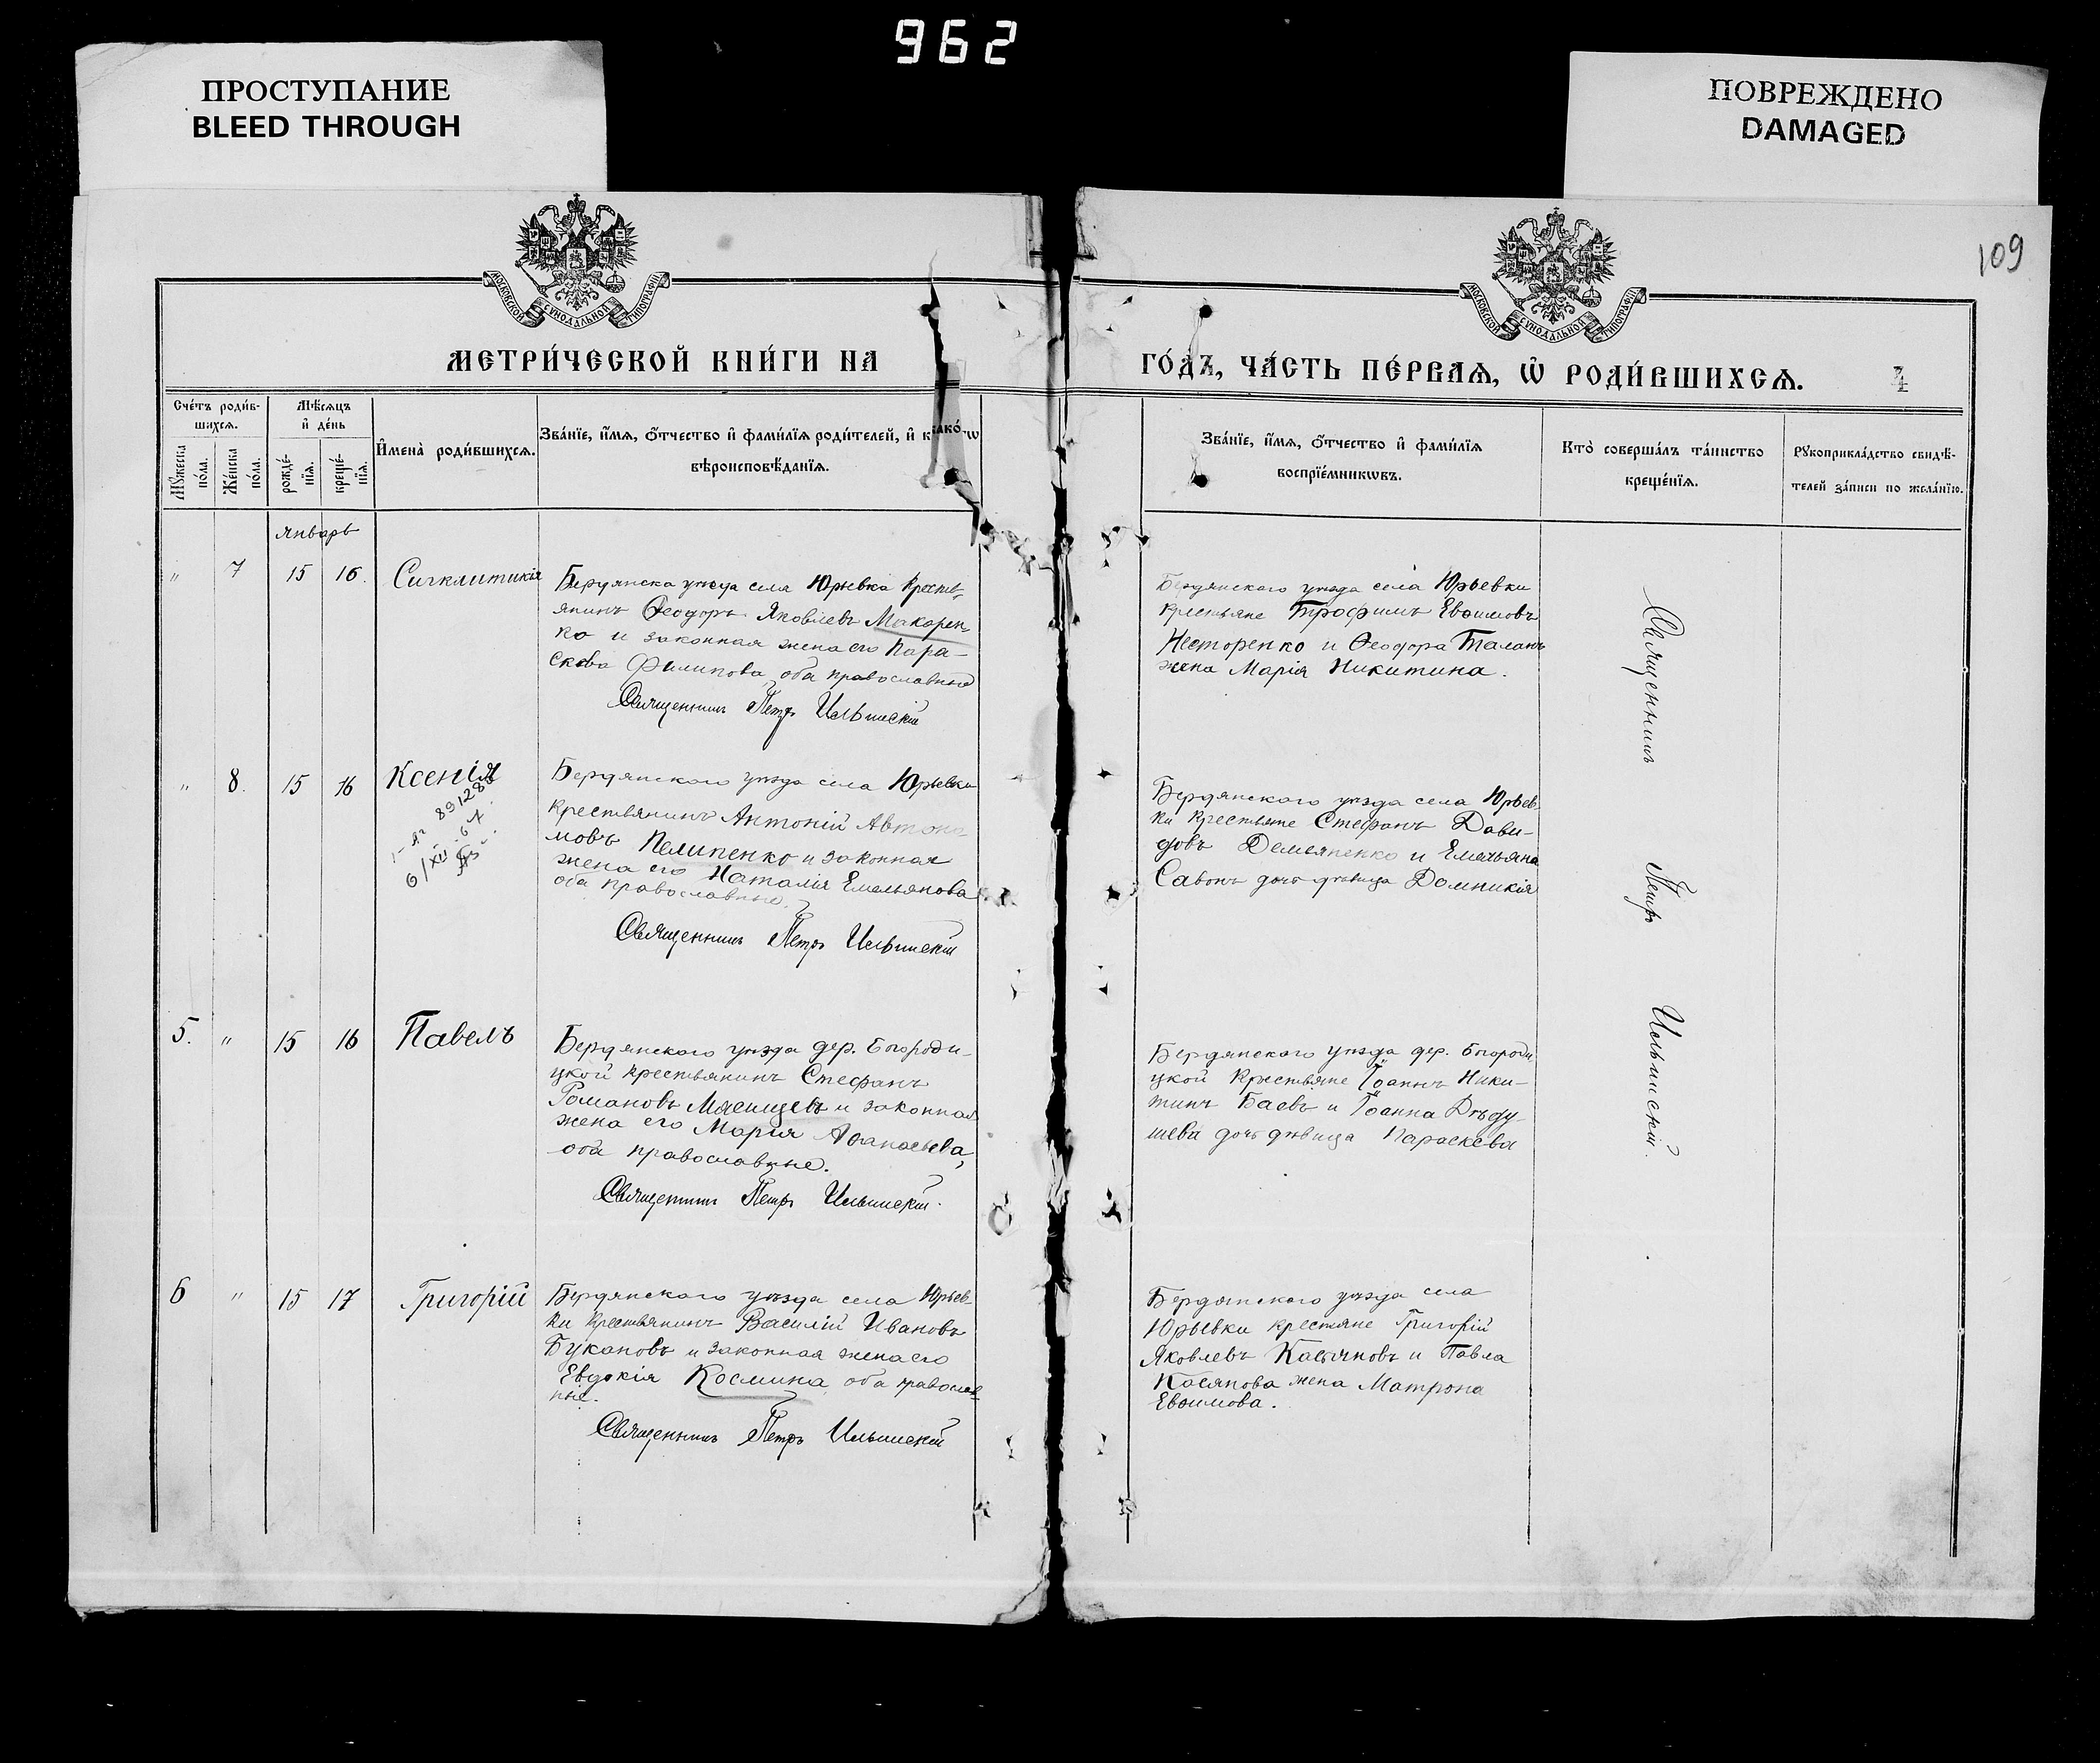 962
ПРОСТУПАНИЕ
BLEED THROUGH
ПОВРЕЖДЕНО
DAMAGED
109
МОСКОВСКОЙ СѴНОДАЛЬНОЙ ТИПОГРАФІИ
МОСКОВСКОЙ СѴНОДАЛЬНОЙ ТИПОГРАФІИ
МЕТРИ́ЧЕСКОЙ КНИ́ГИ НА
ГО́ДЪ, ЧА́СТЬ ПЕ́РВАѦ, Ѡ҆ РОДИ́ВШИХСѦ.
4
Сче́тъ роди́в-
шихсѧ.
Мѣ́сѧцъ
и҆ де́нь
Мꙋ́жеска
по́ла.
Же́нска
по́ла.
рожде́-
нїѧ.
креще́-
нїѧ.
И҆мена̀ роди́вшихсѧ.
Зва́нїе, и҆́мѧ, ѻ҆́тчество и҆ фами́лїѧ роди́телей, и҆ како́гѡ
вѣроисповѣ́данїѧ.
Зва́нїе, и҆́мѧ, ѻ҆́тчество и҆ фами́лїѧ
воспрїе́мникѡвъ.
Кто̀ соверша́лъ та́инство
креще́нїѧ.
Рꙋкоприкла́дство свидѣ́-
телей за́писи по жела́нїю.
январь
" 7 15 16. Сигклитикія
Бердянска уѣзда села Юрьевка крестья-
янинъ Ѳеодоръ Яковлевъ Макарен-
ко и законная жена его Пара-
скева Филипова, оба православные
Священникъ Петръ Ильинскій
Бердянского уѣзда села Юрьевки
крестьяне Трофимъ Евѳимовъ
Несторенко и Ѳеодора Таланъ
жена Марія Никитина.
" 8. 15 16 Ксенія
6/XII
Бердянского уѣзда села Юрьевки
крестьянинъ Антоній Автоно-
мовъ Пелипенко и законная
жена его Наталія Емельянова
оба православные.
Священникъ Петръ Ильинскій
Бердянского уѣзда села Юрьев-
ки крестьяне Стефанъ Дави-
довъ Демьяненко и Емельяна
Савонъ дочь дѣвица Домникія
5. " 15 16 Павелъ
Бердянского уѣзда дер. Богороди-
цкой крестьянинъ Стефанъ
Романовъ Мясищевъ и законная
жена его Марія Аѳанасьева,
оба православные.
Священникъ Петръ Ильинскій.
Бердянского уѣзда дер. Богороди
цкой крестьяне Іоаннъ Ники-
тинъ Баевъ и Іоанна Дѣду-
шева дочь дѣвица Параскева
6 " 15 17 Григорій
Бердянского уѣзда села Юрьев-
ки крестьянинъ Василій Ивановъ
Букановъ и законная жена его
Евдокія Космина, оба православ-
ные.
Священникъ Петръ Ильинскій
Бердянского уѣзда села
Юрьевки крестяне Григорій
Яковлевъ Касьяновъ и Павла
Касянова жена Матрона
Евѳимова.
Священникъ Петръ Ильинскій.